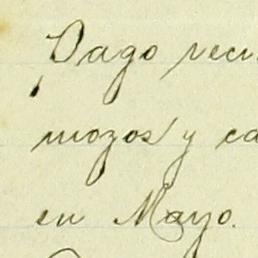 Pago reci
mozos y ca
en Mayo.